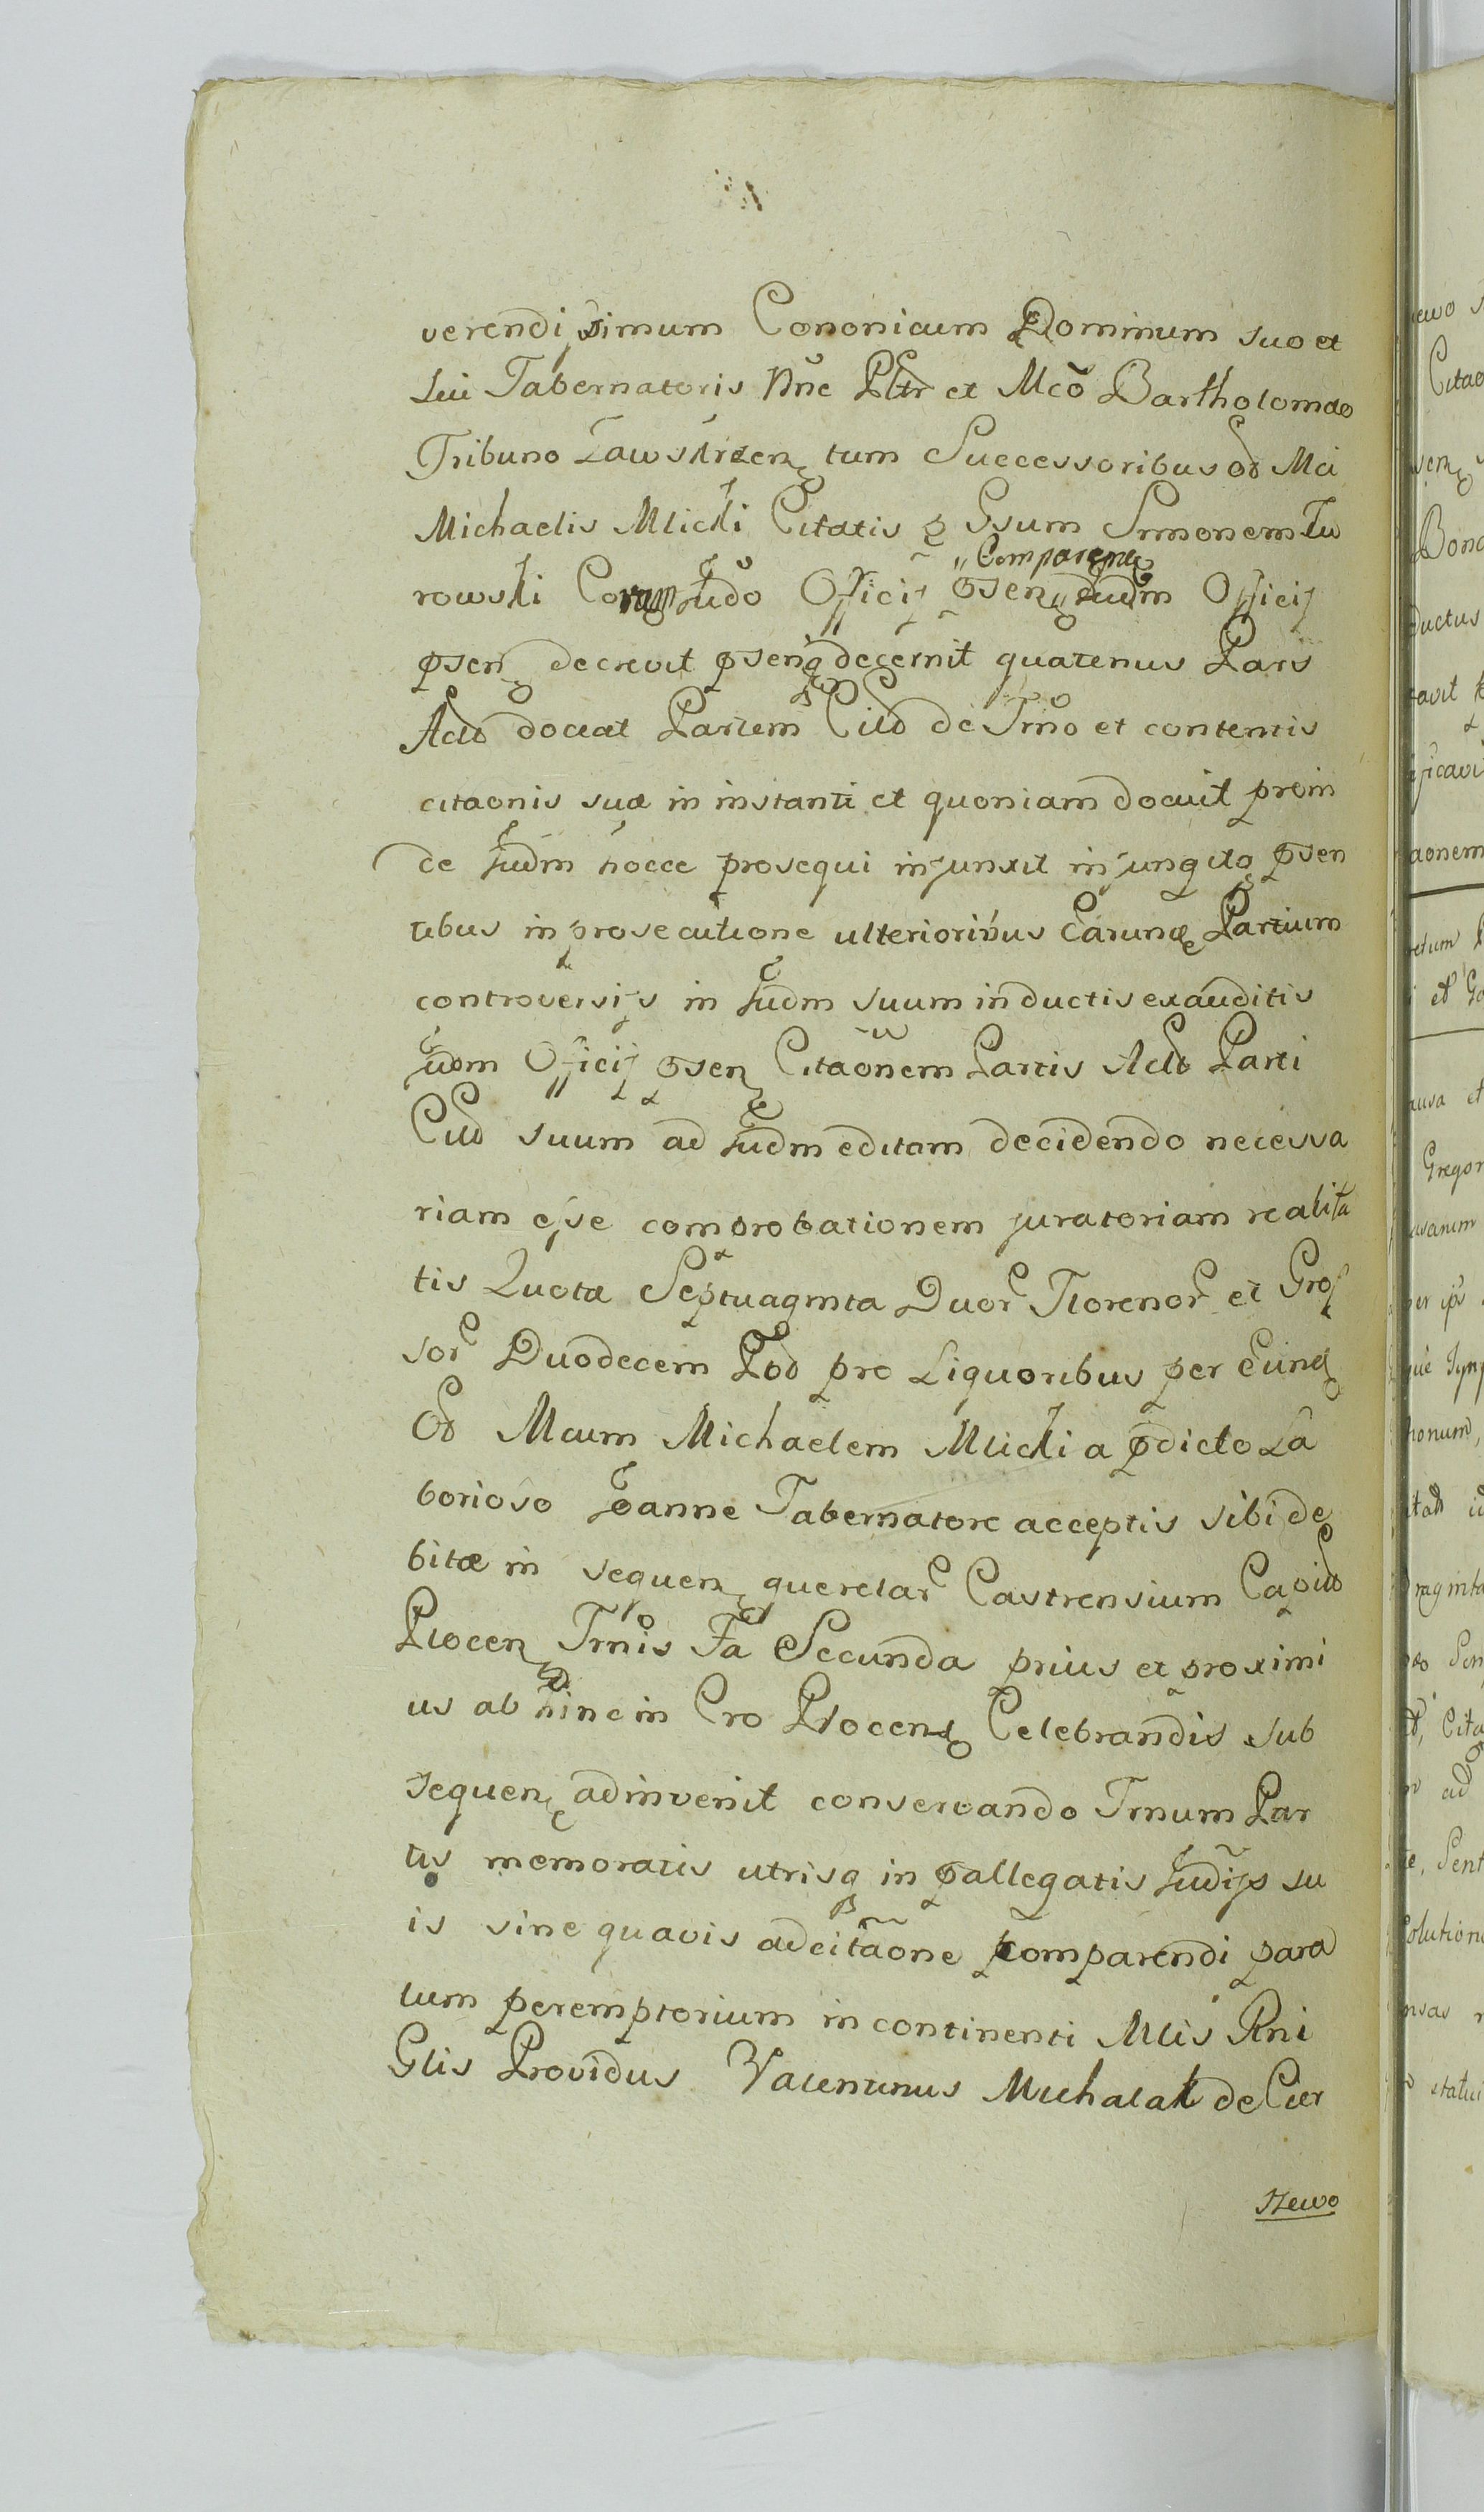 verendissimum Cononicum Dominum suo et
sui Tabernatoris Nne Pltr et Mco Bartholomæo
Tribuno Zawskrzen tum Successoribus od Mci
Michaelis Mlicki Citatis p Gsum Simonem Tu
rowski Coram Judo Officij psen „Comparen„ Judm Officij
psen decrevit psenq decernit quatenus Pars
Acto doceat Partem Citd de Trno et contentis
citaonis suæ in instanti et quoniam docuit proin
de Judm hocce prosequi injunxit injungitq psen
tibus in prosecutione ulterioribus Earund Partium
controversijs in Judm suum inductis exauditis
Judm Officij psen Citaonem Partis Acto Parti
Citd suum ad Judm editam decidendo necessa
riam esse comprobationem juratoriam realita
tis Quotæ Septuaginta Duor Florenor et Gros
sor Duodecem Pod pro Liquoribus per Eund
Od Mcum Michaelem Mlicki a pdicto La
borioso Joanne Tabernatore acceptis sibi de
bitæ in sequen querelar Castrensium Capitd
Plocen Trnis Fa Secunda prius et proximi
us ab hinc in Cro Plocen Celebrandis sub
sequen adinvenit conservando Trnum Par
tis memoratis utrisq in pallegatis Judijs su
is sine quavis adcitaone comparendi para
tum peremptorium in continenti Mlis Rni
Glis Providus Valentinus Michalak de Cier